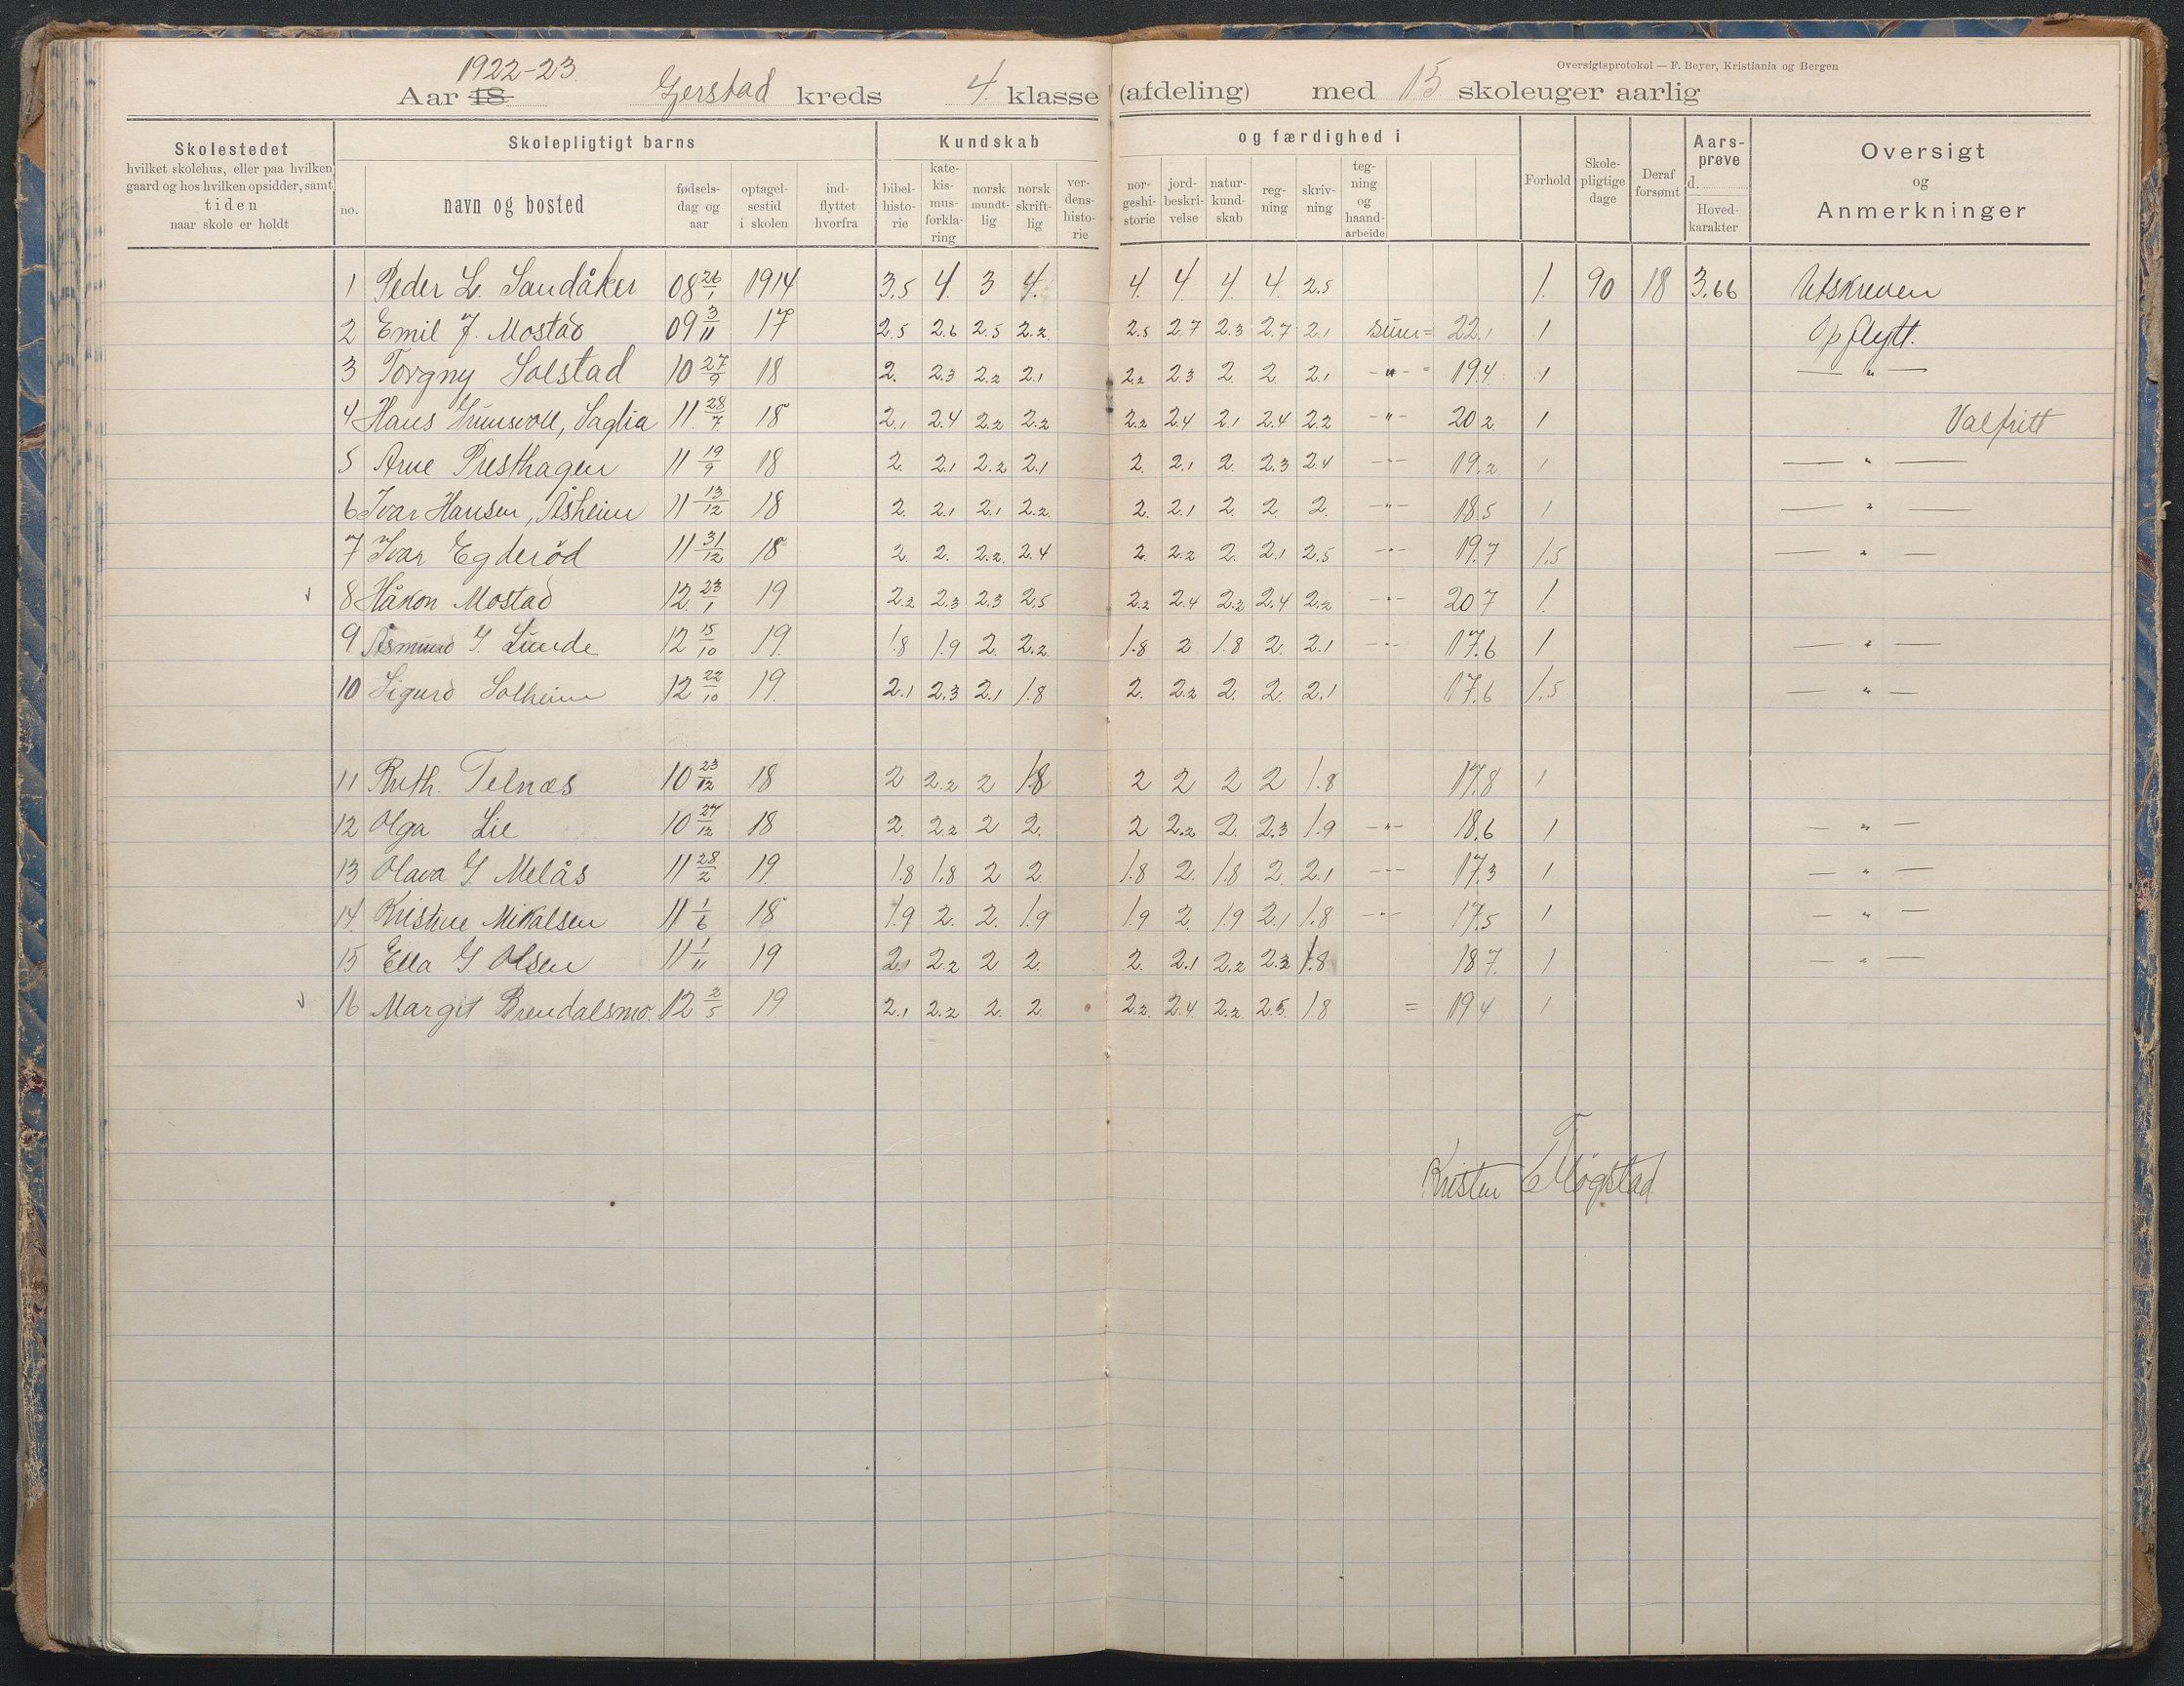 Oversigtsprotokol — F. Beyer, Kristiania og Bergen
1922-23
Aar 18 Gerstad kreds 4. klasse (afdeling) med 15 skoleuger aarlig
Skolestedet
hvilket skolehus, eller paa hvilken
gaard og hos hvilken opsidder, samt
tiden
naar skole er holdt
Skolepligtigt barns
no.
navn og bosted
fødsels-
dag og
aar
optagel-
sestid
i skolen
ind-
flyttet
hvorfra
Kundskab
bibel-
histo-
rie
kate-
kis-
mus-
forkla-
ring
norsk
mundt-
lig
norsk
skrift-
lig
ver-
dens-
histo-
rie
og færdighed i
nor-
geshi-
storie
jord-
beskri-
velse
natur-
kund-
skab
reg-
ning
skriv-
ning
teg-
ning
og
haand-
arbeide
Forhold
Skole-
pligtige
dage
Deraf
forsømt
Aars-
prøve
d.
Hoved-
karakter
Oversigt
og
Anmerkninger
1 Peder L. Sandåker 08 26/1 1914 3,5 4. 3 4. 4. 4. 4. 4. 2.5 1. 90 18 3,66 Utskreven
2 Emil J. Mostad 09 3/11 17 2.5 2.6 2.5 2.2 2.5 2.7 2.3 2.7 2,1 sum = 22,1 1 Opflytt.
3 Torgny Solstad 10 27/9 18 2. 2.3 2.2 2.1 2.2 2.3 2. 2. 2.1 — " — = 19.4 1 — " —
4 Hans Grunsvoll, Saglia 11 28/7 18 2.1 2.4 2.2 2.2 2.2 2.4 2.1 2.4 2.2 — " — 20 2 1 Valfritt
5 Arne Presthagen 11 19/9 18 2. 2.1 2.2 2.1 2. 2.1 2. 2.3 2.4 — " — 19.2 1 — " —
6 Ivar Hansen, Åsheim 11 13/12 18 2. 2.1 2.1 2.2 2. 2.1 2 2 2. — " — 18.5 1 — " —
7 Ivar Egderød 11 31/12 18 2. 2. 2.2. 2.4 2. 2.2 2. 2.1 2.5 — " — 19.7 1.5 — " —
8 Håkon Mostad 12 23/1 19 2.2 2.3 2.3 2.5 2.2 2.4 2.2 2.4 2.2 — " — 20 7 1.
9 Asmund G. Lunde 12 15/10 19. 1.8 1.9 2. 2.2 1.8 2 1.8 2. 2.1 — " — 17.6 1 — " —
10 Sigurd Solheim 12 22/10 19. 2.1 2.3 2.1 1.8 2. 2.2 2. 2. 2.1 17.6 1.5 — " —
11 Ruth Telnæs 10 23/12 18 2 2.2 2 1.8 2 2 2 2 1.8 17.8 1
12 Olga Lie 10 27/12 18 2. 2.2 2 2. 2 2.2 2. 2.3 1.9 — " — 18.6 1 — " —
13 Olava G. Melås 11 28/2 19. 1.8 1.8 2 2 1.8 2. 1.8 2. 2.1 — " — 17.3 1 — " —
14. Kristine Mikalsen 11 1/6 18 1.9 2. 2. 1.9 1.9 2. 1.9 2.1 1.8 — " — 17.5 1 — " —
15 Ella G Olsen 11 1/11 19 2.1 2.2 2 2. 2. 2.1 2.2 2.3 1.8 18 7. 1 — " —
16 Margit Brendalsmo. 12 2/5 19. 2.1 2.2 2. 2 2.2. 2.4. 2.2. 2.5. 1.8 = 19 4 1
Kristen Møgstad